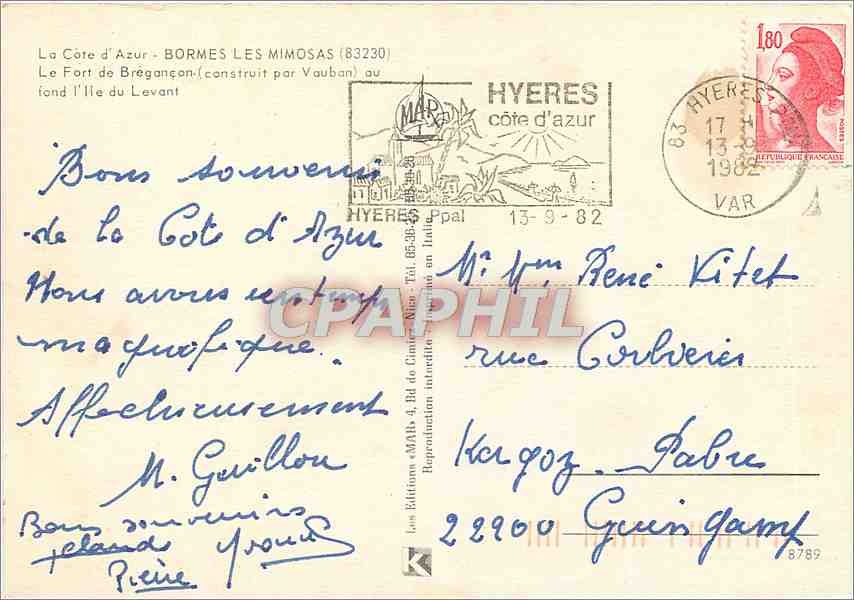 La Côte d'Azur - BORMES LES MIMOSAS (83230)
Le Fort de Brégançon (construit par Vauban) au
fond l'Ile du Levant
Bons souvenirs
de la Cote d'Azur
Nous avons un temps
magnifique.
Affectueusement
M. Guillou
Bons souvenirs
Claude Yvonne
Pierre
Les Editions «MAR» 4, Bd de Cimiez Nice - Tél. 85-36-25 85-30-26
Reproduction interdite - Imprimé en Italie
K
MAR
HYERES
côte d'azur
HYERES Ppal 13-9-82
83 HYERES PPAL
17 H
13-9
1982
VAR
1,80
POSTES
REPUBLIQUE FRANCAISE
Mr Mme René Vitet
rue Corbieres
Pabu
22900 Guingamp
8789
CPAPHIL